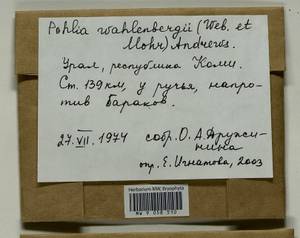 Pohlia wahlenbergii (Web. et
Mohr) Andrews.
Урал, республика Коми.
Ст. 139 км, у ручья, напро-
тив бараков.
27.VII. 1974 собр. О. А. Дружи-
нина
опр. Е. Игнатова, 2003
Herbarium MW, Bryophyta